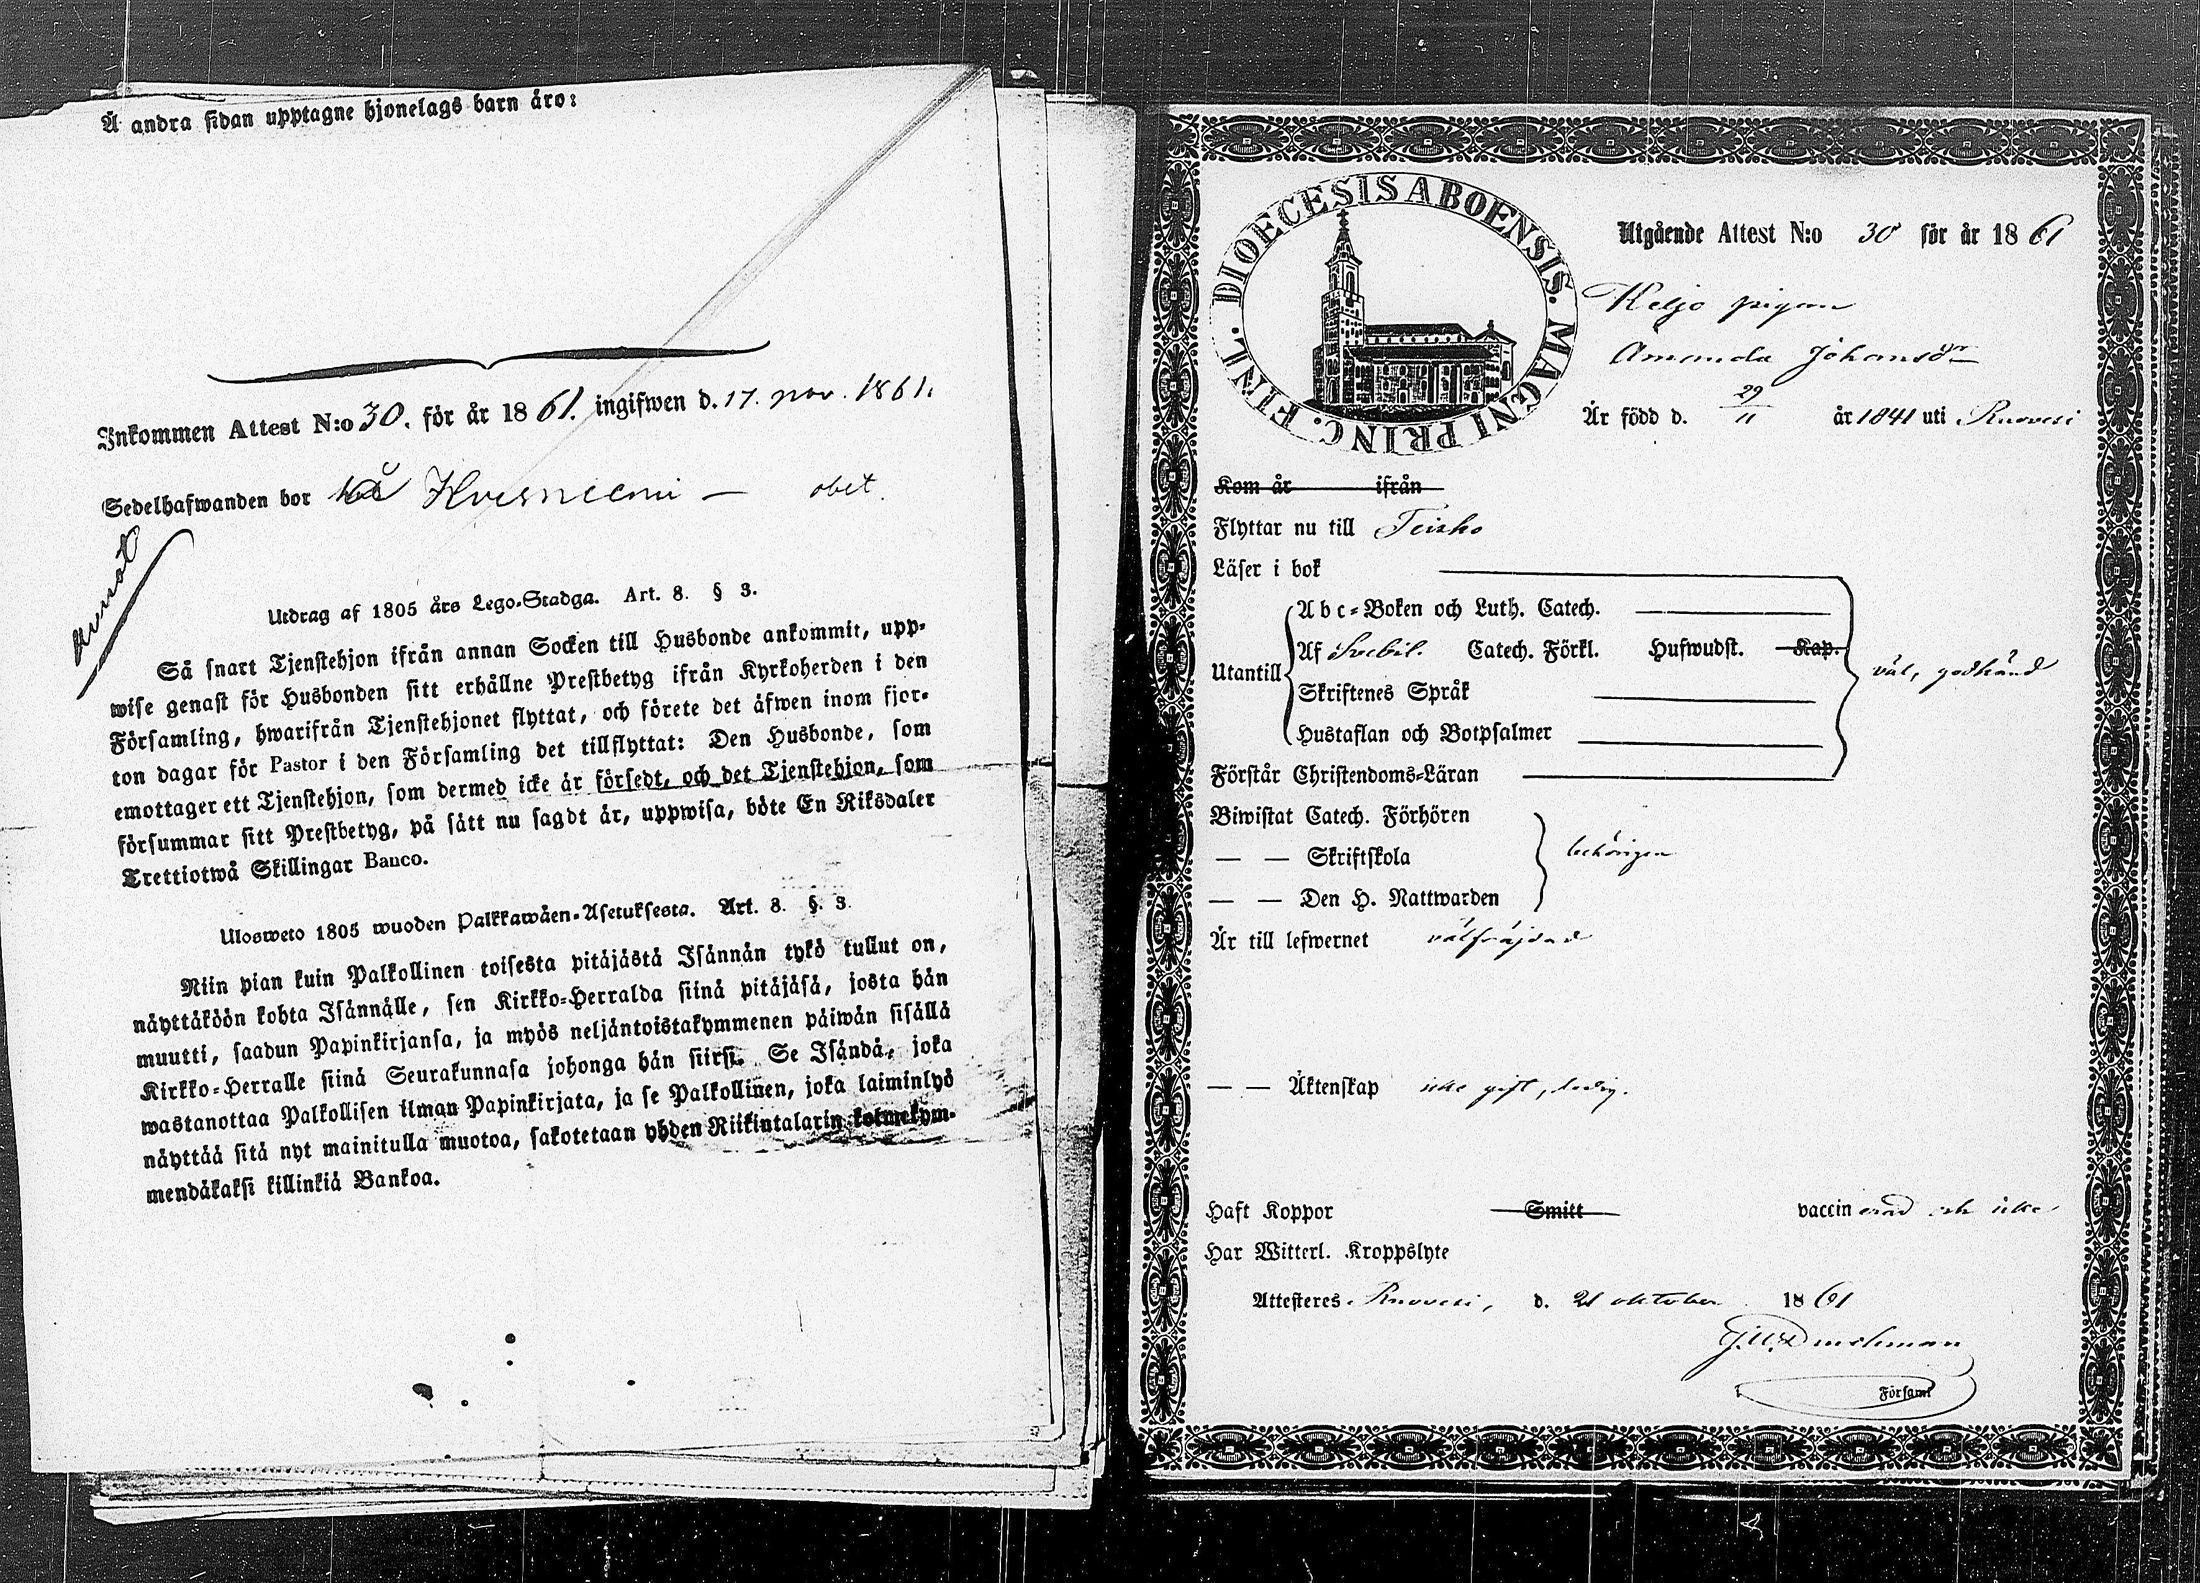 Å andra sidan upptagne hjonelags barn äro:
Inkommen Attest N:o 30. för år 1861. ingifwen d. 17. nov. 1861.
Sedelhafwanden bor Hvesniemi — obet.
Utdrag af 1805 års Lego-Stadga. Art. 8. § 3.
Så snart Tjenstehjon ifrån annan Socken till Husbonde ankommit, upp-
wise genast för Husbonden sitt erhållne Prestbetyg ifrån Kyrkoherden i den
Församling, hwarifrån Tjenstehjonet flyttat, och förete det äfwen inom fjor-
ton dagar för Pastor i den Församling det tillflyttat: Den Husbonde, som
emottager ett Tjenstehjon, som dermed icke är försedt, och det Tjenstehjon, som
försummar sitt Prestbetyg, på sätt nu sagdt är, uppwisa, böte En Riksdaler
Trettiotwå Skillingar Banco.
Ulosweto 1805 wuoden Palkkawäen-Asetuksesta. Art. 8. §. 3.
Niin pian kuin Palkollinen toisesta pitäjästä Isännän tykö tullut on,
näyttäköön kohta Isännälle, sen Kirkko-Herralda siinä pitäjäsä, josta hän
muutti, saadun Papinkirjansa, ja myös neljäntoistakymmenen päiwän sisällä
Kirkko-Herralle siinä Seurakunnasa johonga hän siirsi. Se Isändä, joka
wastanottaa Palkollisen ilman Papinkirjata, ja se Palkollinen, joka laiminlyö
näyttää sitä nyt mainitulla muotoa, sakotetaan yhden Riikintalarin kolmekym-
mendäkaksi killinkiä Bankoa.
DIOECESIS ABOENSIS. MAGNI PRINC. FINL.
Utgående Attest N:o 30 för år 1861
pigan
Amanda Johansdr
Är född d. 29/11 år 1841 uti Ruovesi
Kom år ifrån
Flyttar nu till Teisko
Läser i bok
Abc-Boken och Luth. Catech.
Utantill Af Svebil. Catech. Förkl. Hufwudst. Kap.
väl, godkänd
Skriftenes Språk
Hustaflan och Botpsalmer
Förstår Christendoms-Läran
Biwistat Catech. Förhören
— — Skriftskola behörigen
— — Den H. Nattwarden
Är till lefwernet välfräjdad
— — Äktenskap icke gift, ledig.
Haft Koppor Smitt vaccinerad och icke
Har Witterl. Kroppslyte
Attesteras Ruovesi, d. 21 oktober 1861
Församl